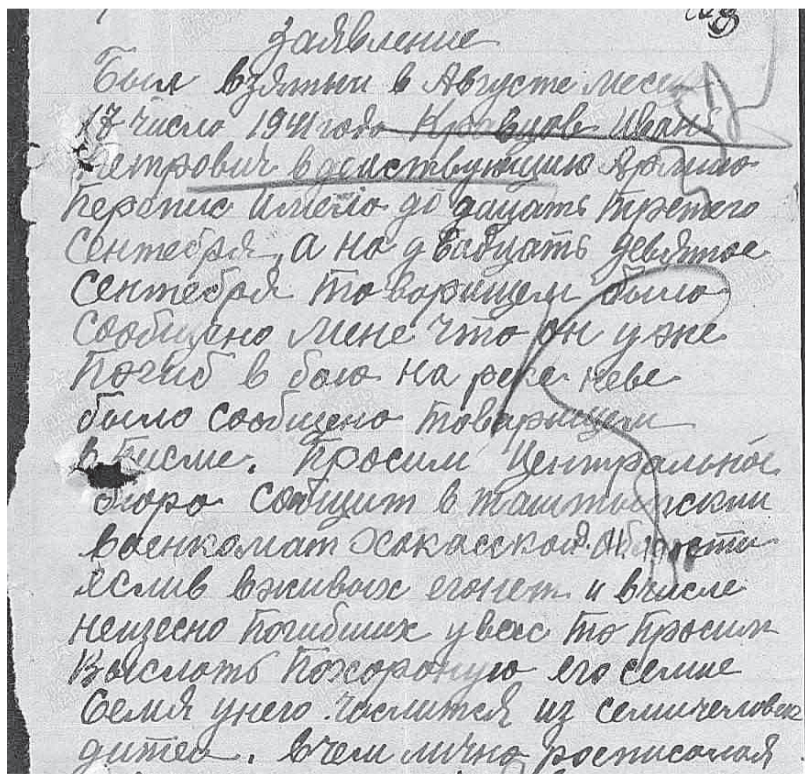 Заявление
Был взятыи в Августе месец
17 число 1941 года Кравцов Иван
Петрович в деиствующию Армию
перепис имело до дацать третего
Сентебря, а на двадцать девятое
сентебря товарищем было
сообщено мене что он уже
погиб в бою на реке неве
было сообщено товарищем
в писме. Просим Центральное
бюро сообщит в таштыпскии
военкомат Хакасской области
яслив вживых егонет и вчисле
неизесно погибших увас то просим
выслать похороную его семие
Семя унего числится из семичеловек
дитеи. вчем лично росписалая